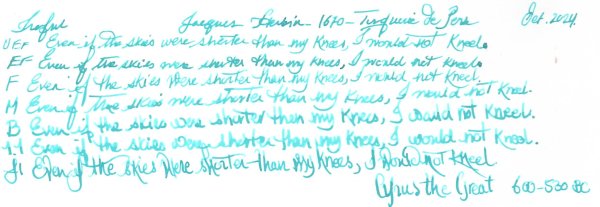 Jacques Herbin - 1670 - Turquoise de Perse Oct. 2024
UEF Even if the skies were shorter than my knees, I would not kneel.
EF Even if the skies were shorter than my knees, I would not kneel.
F Even if the skies were shorter than my knees, I would not kneel.
M Even if the skies were shorter than my knees, I would not kneel.
B Even if the skies were shorter than my knees, I would not kneel.
1.1 Even if the skies were shorter than my knees, I would not kneel.
Even if the skies were shorter than my knees, I would not kneel
Cyrus the Great 600-530 BC